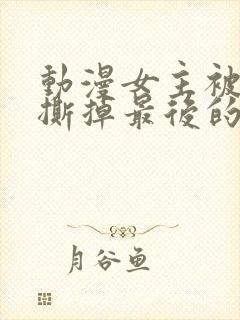 動漫女主被
撕掉最後的
月谷鱼